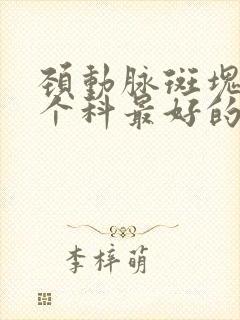 颈動脉斑塊
个科最好的
李梓萌